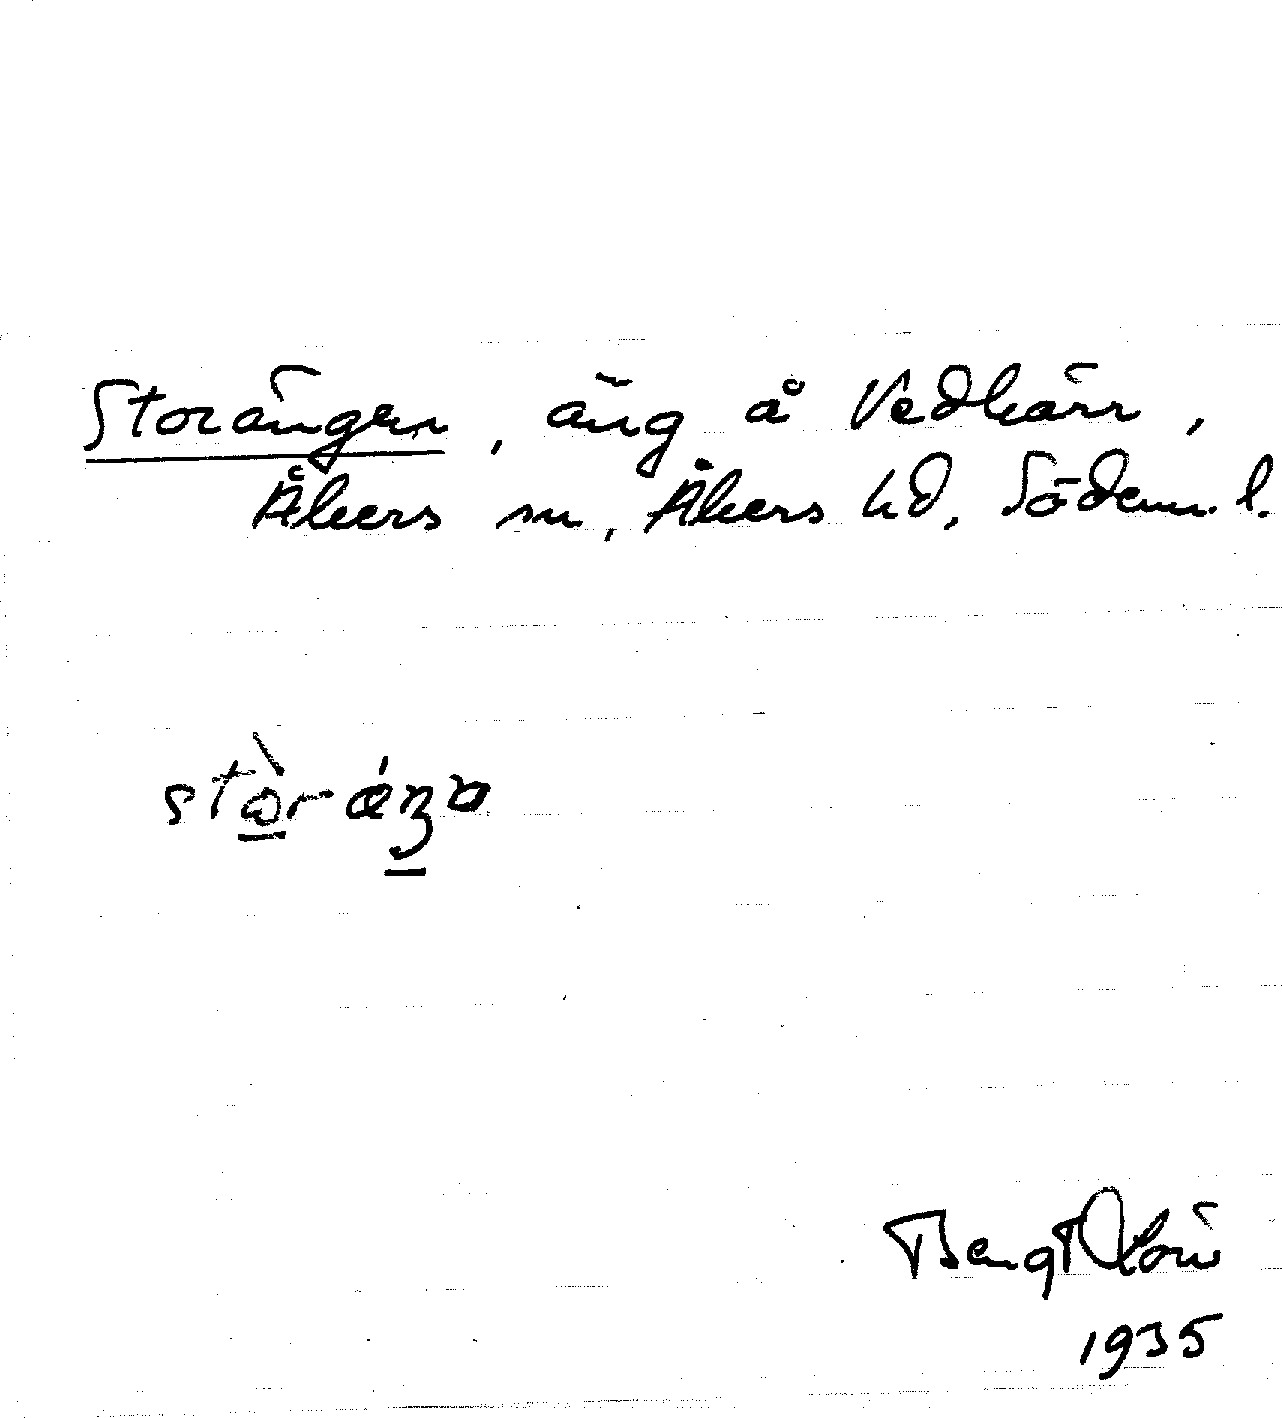 Storängen, äng å Vedkärr,
Åkers sn, Åkers hd, Söderm. l.
stòrǽŋa
Bengt
1935